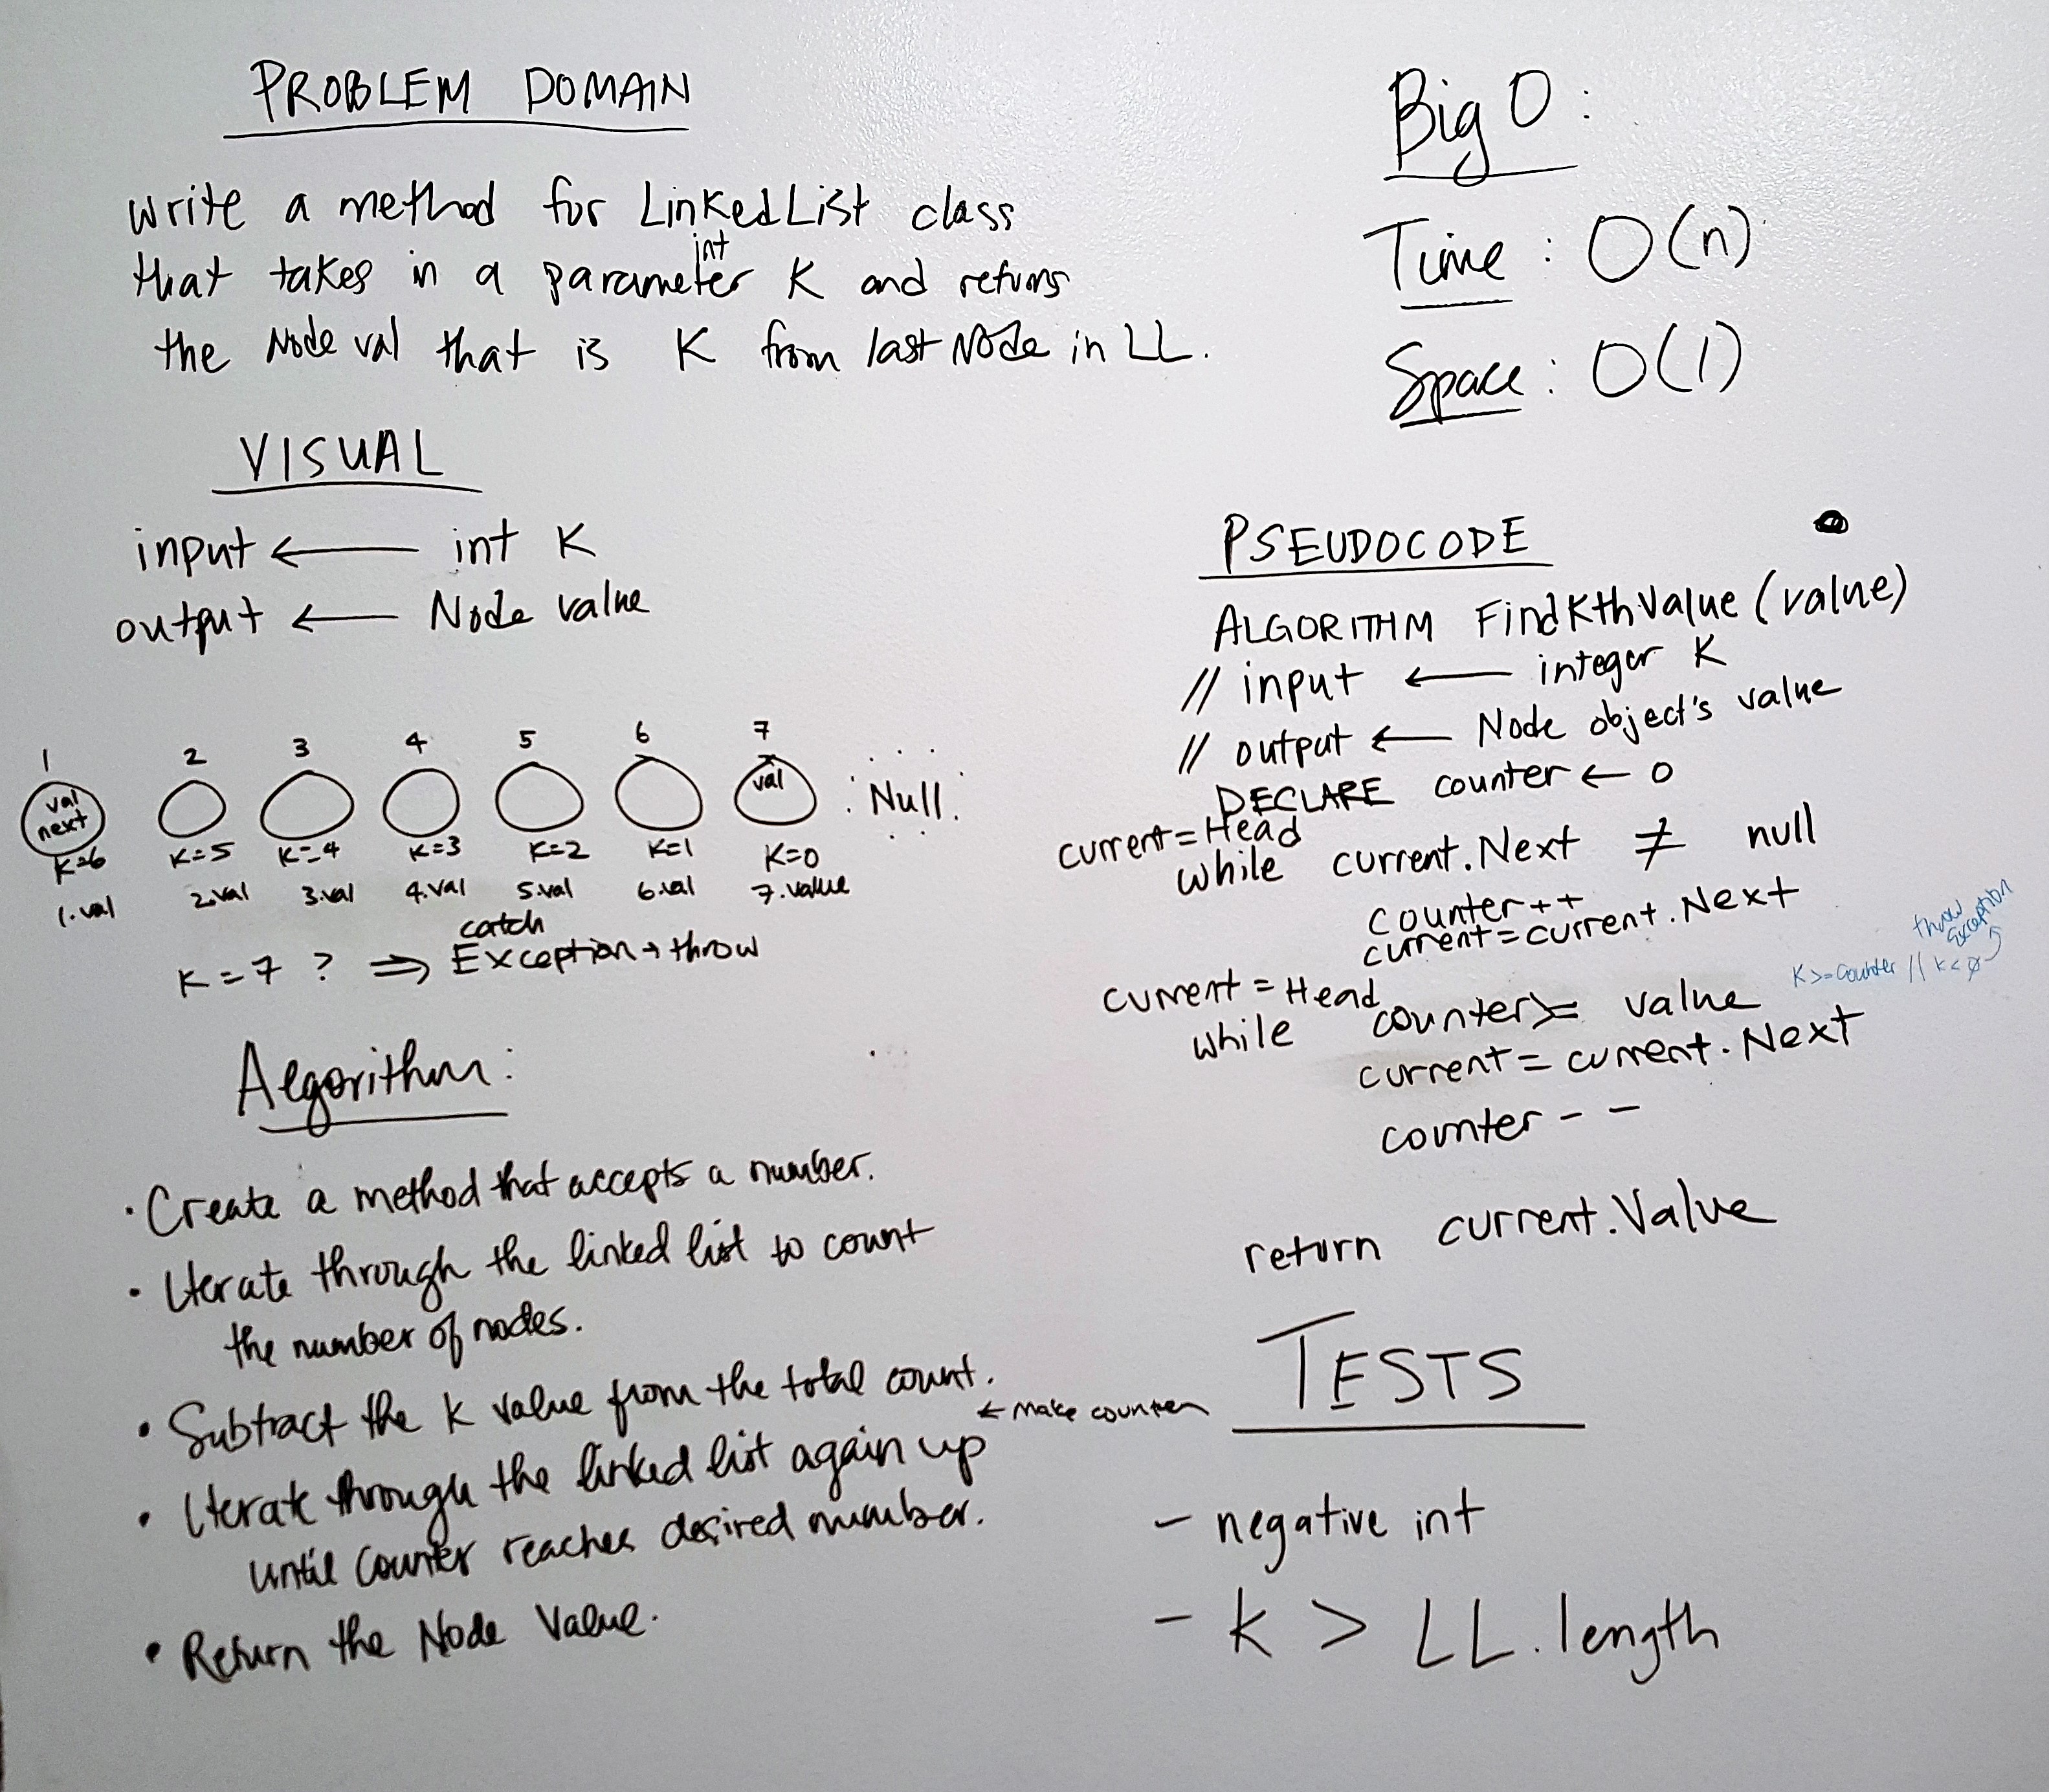 PROBLEM DOMAIN
write a method for LinkedList class
int
that takes in a parameter K and returns
the Node val that is K from last Node in LL.
VISUAL
input ← int K
output ← Node value
1 2 3 4 5 6 7
val
next
val
Null
K=6 K=5 K=4 K=3 K=2 K=1 K=0
1.val 2.val 3.val 4.val 5.val 6.val 7.value
catch
K=7 ? ⇒ Exception → throw
Algorithm:
• Create a method that accepts a number.
• Iterate through the linked list to count
the number of nodes.
• Subtract the K value from the total count.
← make counter
• Iterate through the linked list again up
until counter reaches desired number.
• Return the Node Value.
Big O:
Time: O(n)
Space: O(1)
PSEUDOCODE
ALGORITHM FindKthValue (value)
// input ← integer K
// output ← Node object's value
DECLARE counter ← 0
current = Head
while current.Next ≠ null
counter++
current = current.Next
throw
Exception
K>=counter || K<0
current = Head
while counter >= value
current = current.Next
counter --
return current.Value
TESTS
- negative int
- k > LL.length